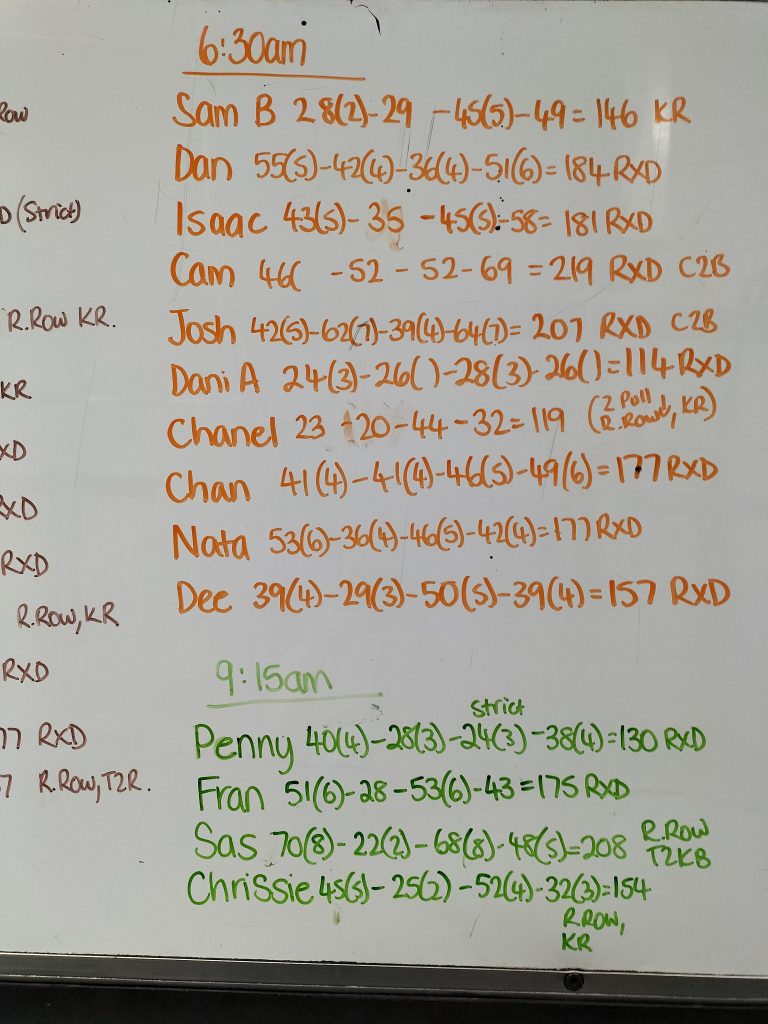 Row
D (Strict)
R.Row KR.
KR
XD
RXD
RXD
R.Row, KR
RXD
77 RXD
7 R.Row, T2R.
6:30am
Sam B 28(2)-29 -45(5)-49= 146 KR
Dan 55(5)-42(4)-36(4)-51(6)= 184 RXD
Isaac 43(5)- 35 -45(5)-58= 181 RXD
Cam 46( -52 - 52-69 = 219 RXD C2B
Josh 42(5)-62(7)-39(4)-64(7)= 207 RXD C2B
Dani A 24(3)-26( )-28(3)-26( )=114 RXD
Chanel 23 -20-44-32= 119 (2 Pull R.Row, KR)
Chan 41(4)-41(4)-46(5)-49(6)= 177 RXD
Nata 53(6)-36(4)-46(5)-42(4)=177 RXD
Dee 39(4)-29(3)-50(5)-39(4)=157 RXD
9:15am
strict
Penny 40(4)-28(3)-24(3)-38(4)=130 RXD
Fran 51(6)-28-53(6)-43=175 RXD
Sas 70(8)-22(2)-68(8)-48(5)=208 R.Row T2KB
Chrissie 45(5)-25(2)-52(4)-32(3)=154
R.Row,
KR